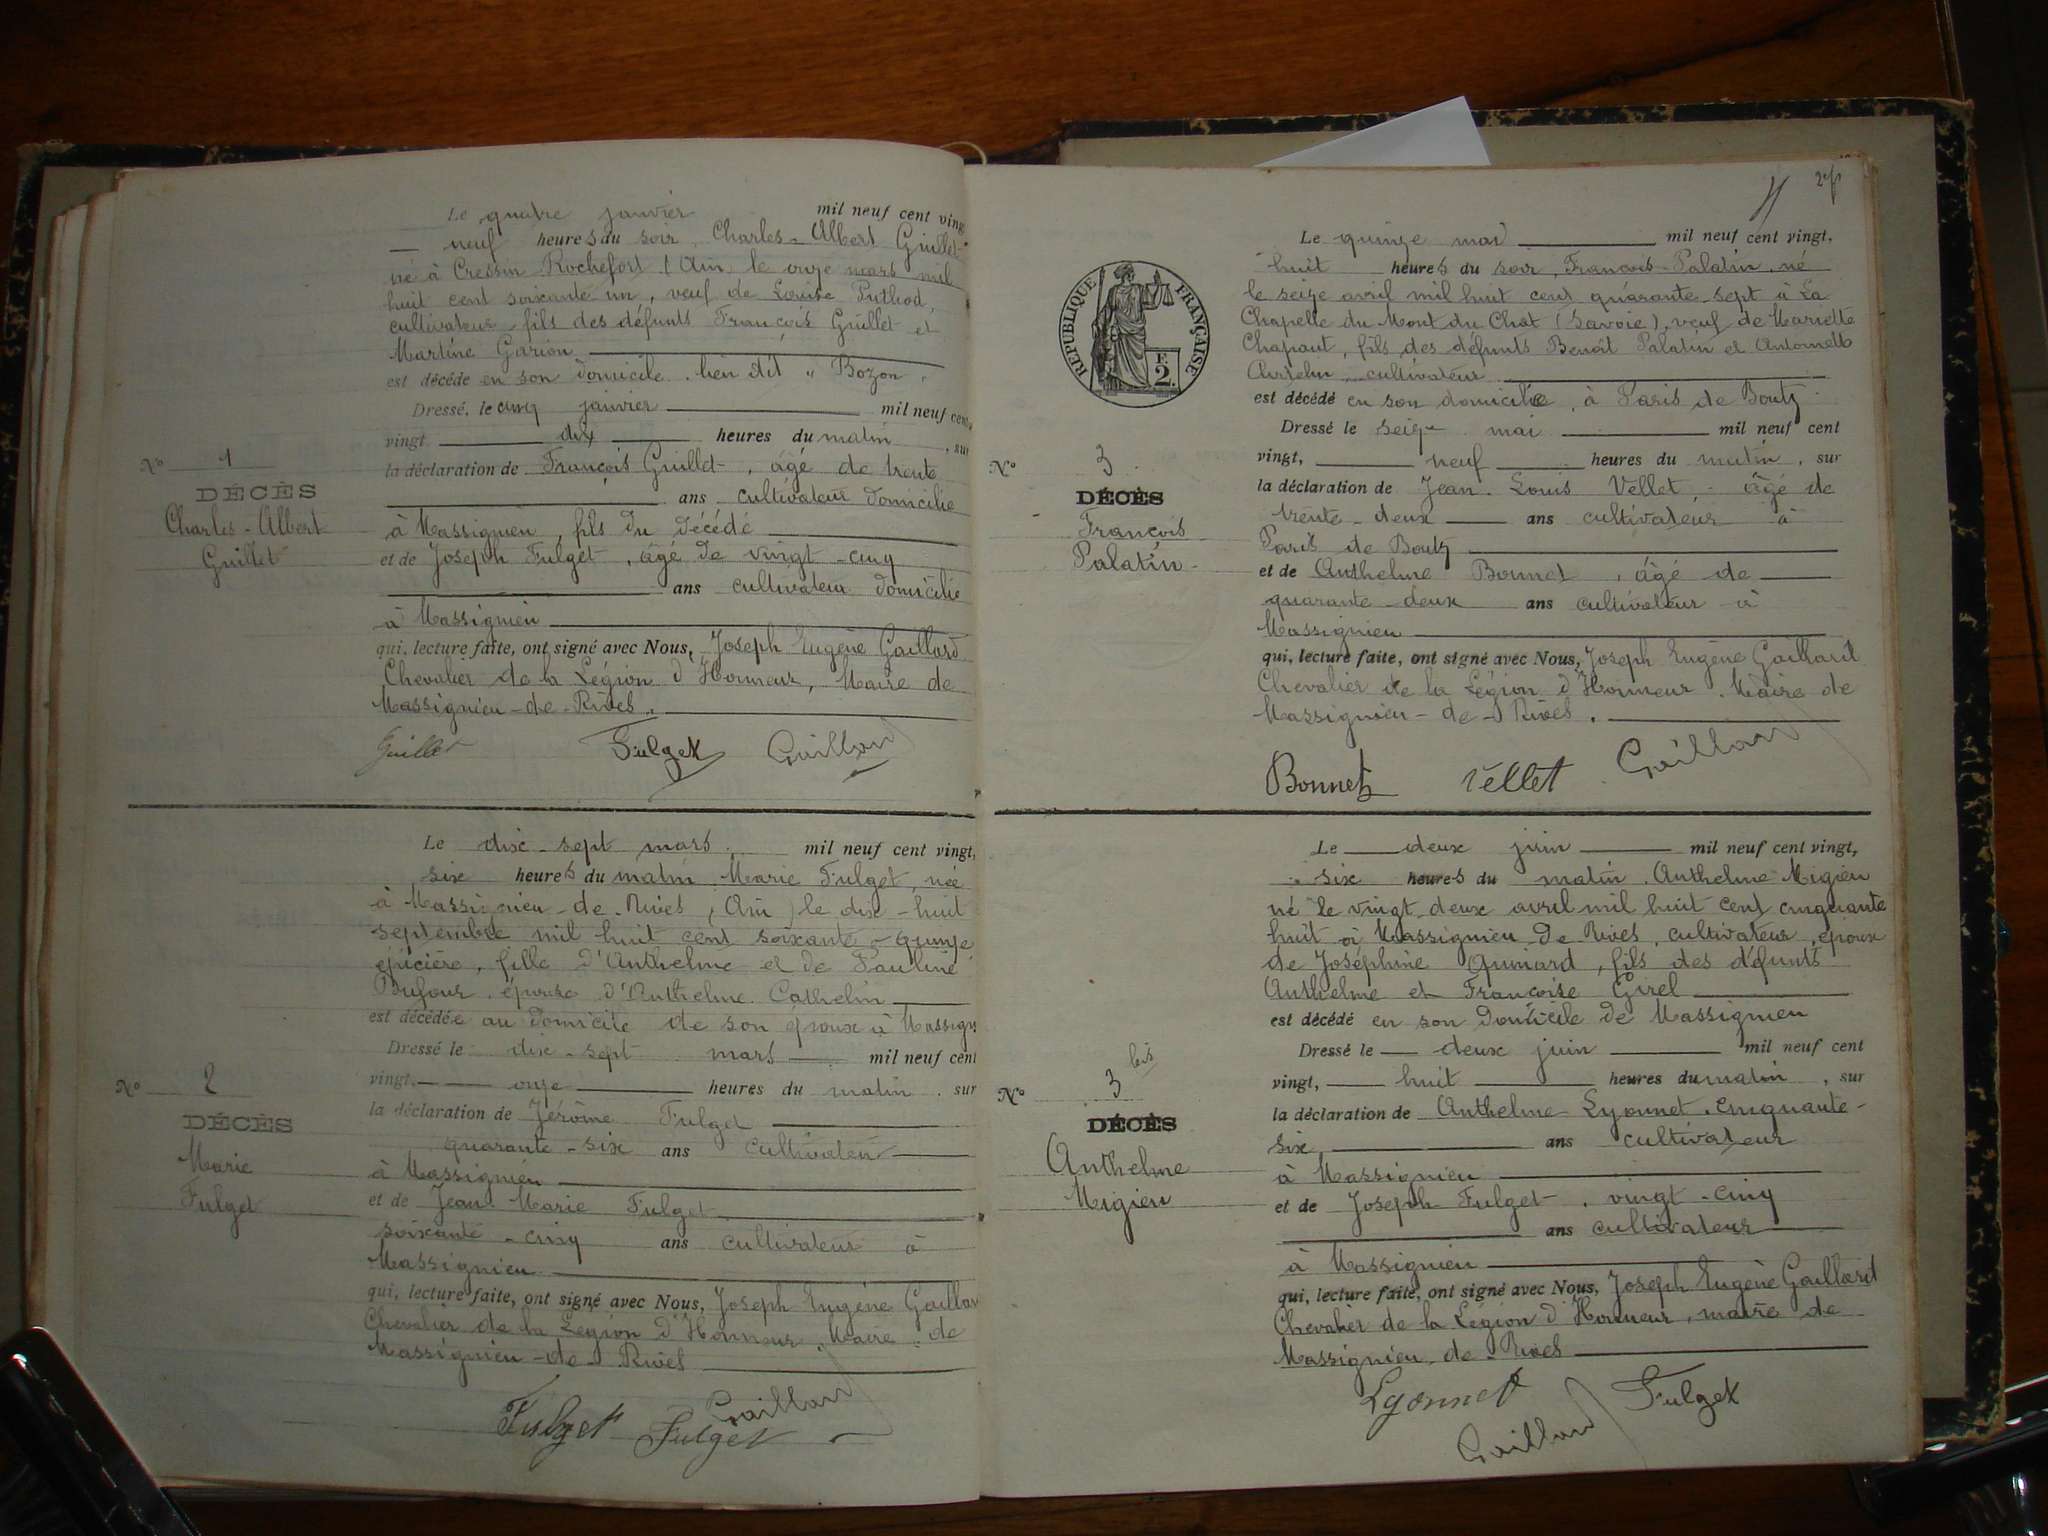 Le quatre janvier mil neuf cent vingt
neuf heures du soir, Charles-Albert Guillet
né à Cressin Rochefort (Ain) le onze mars mil
huit cent soixante un, veuf de Louise Puthod,
cultivateur, fils des défunts François Guillet et
Martine Garion
est décédé en son domicile, lieu dit " Bozon "
Dressé, le cinq janvier mil neuf cent
vingt dix heures du matin, sur
la déclaration de François Guillet, âgé de trente
ans cultivateur domicilié
à Massignieu, fils du décédé
et de Joseph Fulget, âgé de vingt-cinq
ans cultivateur domicilié
à Massignieu
qui, lecture faite, ont signé avec Nous, Joseph Eugène Gaillard
Chevalier de la Légion d'Honneur, Maire de
Massignieu-de-Rives.
Guillet Fulget Gaillard
N° 1
DÉCÈS
Charles-Albert
Guillet
Le dix-sept mars mil neuf cent vingt,
six heures du matin Marie Fulget, née
à Massignieu-de-Rives (Ain) le dix-huit
septembre mil huit cent soixante-quinze
épicière, fille d'Anthelme et de Pauline
Dufour, épouse d'Anthelme Cathelin
est décédée au domicile de son époux à Massign
Dressé le dix-sept mars mil neuf cent
vingt, onze heures du matin, sur
la déclaration de Jérôme Fulget
quarante-six ans cultivateur
à Massignieu
et de Jean-Marie Fulget
soixante-cinq ans cultivateur à
Massignieu
qui, lecture faite, ont signé avec Nous, Joseph Eugène Gaillar
Chevalier de la Légion d'Honneur, Maire de
Massignieu-de-Rives
Fulget Fulget Gaillard
N° 2
DÉCÈS
Marie
Fulget
RÉPUBLIQUE FRANÇAISE
F.
2.
Le quinze mai mil neuf cent vingt,
huit heures du soir, François Palatin, né
le seize avril mil huit cent quarante-sept à La
Chapelle du Mont du Chat (Savoie), veuf de Mariette
Chapaut, fils des défunts Benoît Palatin et Antoinette
cultivateur
est décédé en son domicile, à Paris de Boutz
Dressé le seize mai mil neuf cent
vingt, neuf heures du matin, sur
la déclaration de Jean-Louis Vellet, âgé de
trente-deux ans cultivateur à
Paris de Boutz
et de Anthelme Bonnet, âgé de
quarante-deux ans cultivateur à
Massignieu
qui, lecture faite, ont signé avec Nous, Joseph Eugène Gaillard
Chevalier de la Légion d'Honneur, Maire de
Massignieu-de-Rives.
Bonnet Vellet Gaillard
N° 3
DÉCÈS
François
Palatin
Le deux juin mil neuf cent vingt,
six heures du matin, Anthelme Migieu
né le vingt-deux avril mil huit cent cinquante
huit à Massignieu de Rives, cultivateur, époux
de Joséphine Aymard, fils des défunts
Anthelme et Françoise Girel
est décédé en son domicile de Massignieu
Dressé le deux juin mil neuf cent
vingt, huit heures du matin, sur
la déclaration de Anthelme Lyonnet, cinquante-
six ans cultivateur
à Massignieu
et de Joseph Fulget, vingt-cinq
ans cultivateur
à Massignieu
qui, lecture faite, ont signé avec Nous, Joseph Eugène Gaillard
Chevalier de la Légion d'Honneur, maire de
Massignieu-de-Rives
Lyonnet Gaillard Fulget
N° 3 bis
DÉCÈS
Anthelme
Migieu